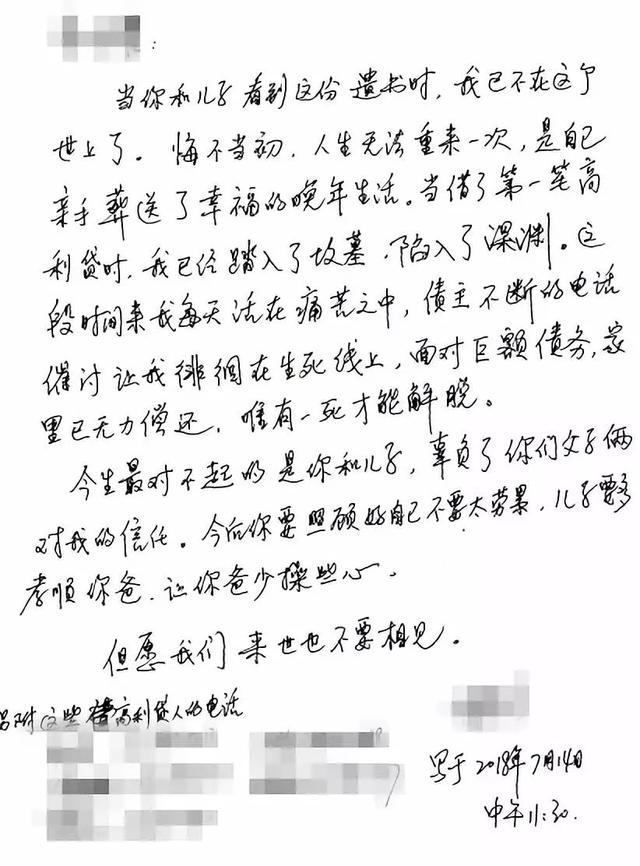 :
当你和儿子看到这份遗书时，我已不在这个
世上了。悔不当初，人生无法重来一次，是自己
亲手葬送了幸福的晚年生活。当借了第一笔高
利贷时，我已经踏入了坟墓，陷入了深渊。这
段时间来我每天活在痛苦之中，债主不断的电话
催讨让我徘徊在生死线上，面对巨额债务，家
里已无力偿还，唯有一死才能解脱。
今生最对不起的是你和儿子，辜负了你们父子俩
对我的信任。今后你要照顾好自己不要太劳累，儿子要
孝顺你爸，让你爸少操些心。
但愿我们来世也不要相见。
另附这些借高利贷人的电话
写于2018年7月14日
中午11:30.